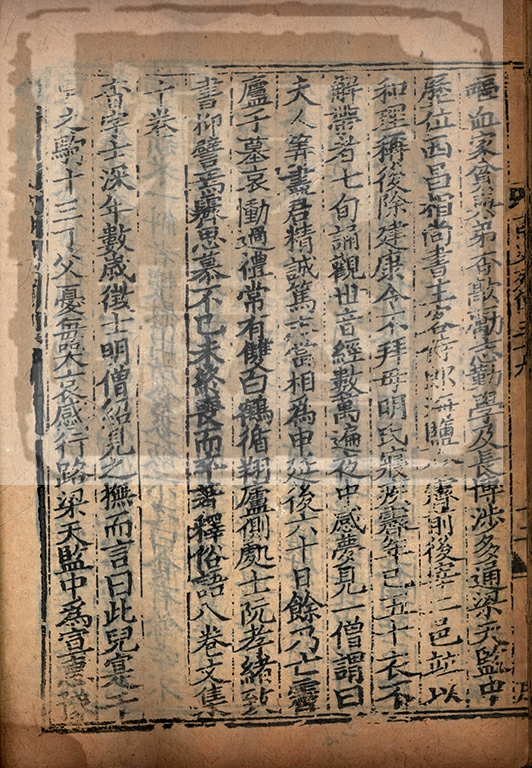 嘔血家貧與弟杳歊勵志勤學及長博涉多通梁天監中
歷位西昌相尚書主客侍郎海鹽令霽前後宰二邑並以
和理稱後除建康令不拜母明氏寢疾霽年已五十衣不
解帶者七旬誦觀世音經數萬遍夜中感夢見一僧謂曰
夫人筭盡君精誠篤志當相為申延後六十日餘乃亡霽
廬于墓哀慟過禮常有雙白鶴循翔廬側處士阮孝緒致
書抑譬焉霽思慕不已未終喪而卒著釋俗語八卷文集
十卷
杳字士深年數歲徵士明僧紹見之撫而言曰此兒實千
里之駒十三丁父憂每哭哀感行路梁天監中為宣惠豫